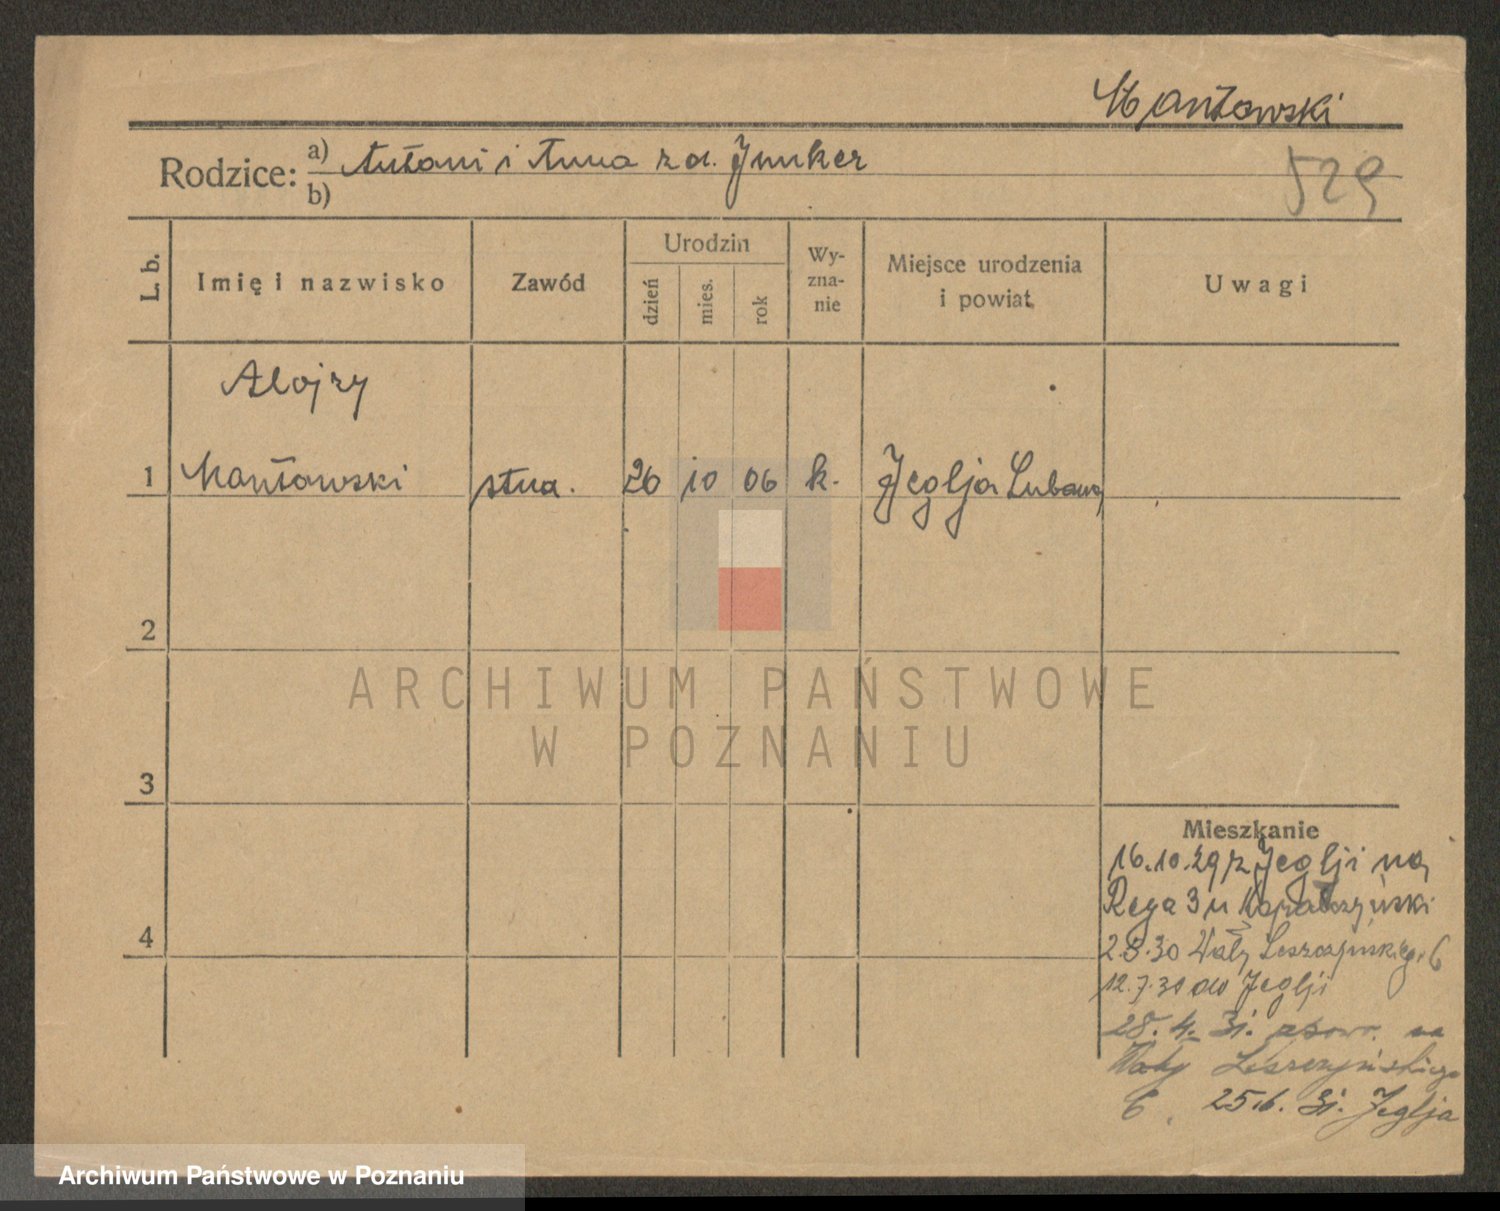 Mańtowski
Rodzice: a) Antoni i Anna z d. Junker
b)
529
L. b.
Imię i nazwisko
Zawód
Urodzin
dzień
mies.
rok
Wy-
zna-
nie
Miejsce urodzenia
i powiat
Uwagi
Alojzy
1 Mańtowski stud. 26 10 06 k. Jeglja Lubawa
2
3
4
Mieszkanie
16.10.29 z Jeglji na
Reya 3 u
2.8.30 Wały Leszczyńskiego 6
12.7.30 do Jeglji
28. 4. 31. na
Wały Leszczyńskiego
6. 25.6. 31. Jeglja
ARCHIWUM PAŃSTWOWE
W POZNANIU
Archiwum Państwowe w Poznaniu